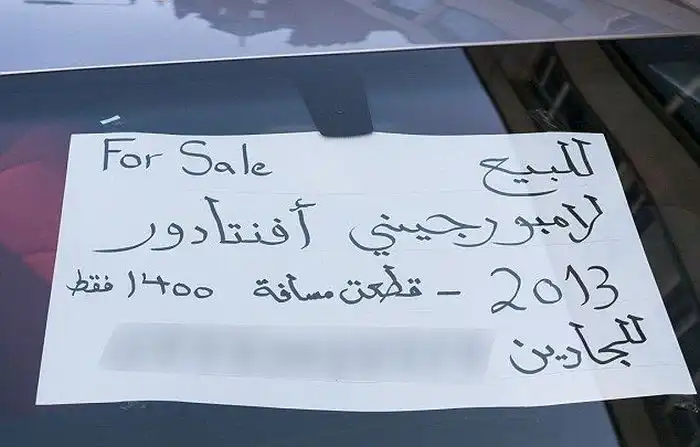 For Sale للبيع
لامبورجيني أفنتادور
2013 - قطعت مسافة 1400 فقط
للجادين